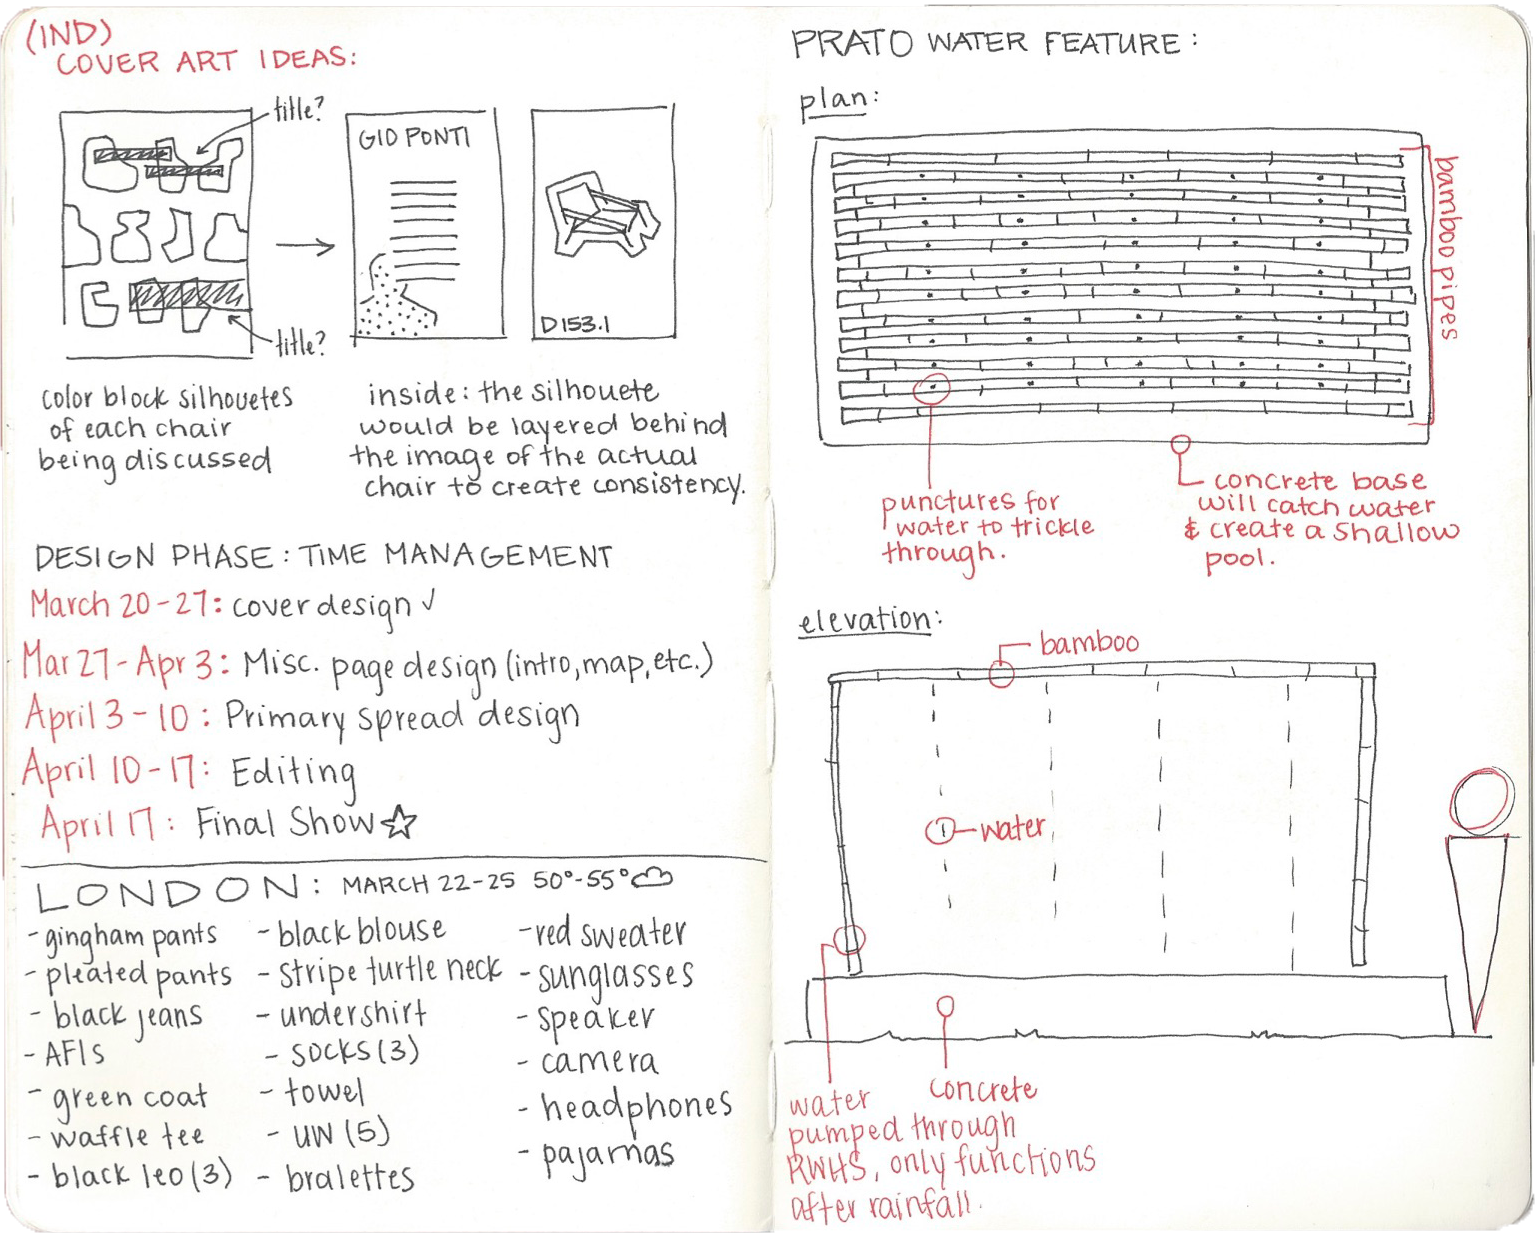 (IND)
COVER ART IDEAS:
title?
GIO PONTI
D153.1
title?
color block silhouetes
of each chair
being discussed
inside: the silhouete
would be layered behind
the image of the actual
chair to create consistency.
DESIGN PHASE: TIME MANAGEMENT
March 20-27: cover design ✓
Mar 27 - Apr 3: Misc. page design (intro, map, etc.)
April 3 - 10: Primary spread design
April 10 - 17: Editing
April 17: Final Show ☆
LONDON: MARCH 22-25 50°-55°
- gingham pants
- pleated pants
- black jeans
- AF1s
- green coat
- waffle tee
- black leo (3)
- black blouse
- stripe turtle neck
- undershirt
- socks (3)
- towel
- UW (5)
- bralettes
- red sweater
- sunglasses
- speaker
- camera
- headphones
- pajamas
PRATO WATER FEATURE:
plan:
bamboo pipes
punctures for
water to trickle
through.
concrete base
will catch water
& create a shallow
pool.
elevation:
bamboo
water
concrete
water
pumped through
RWHS, only functions
after rainfall.